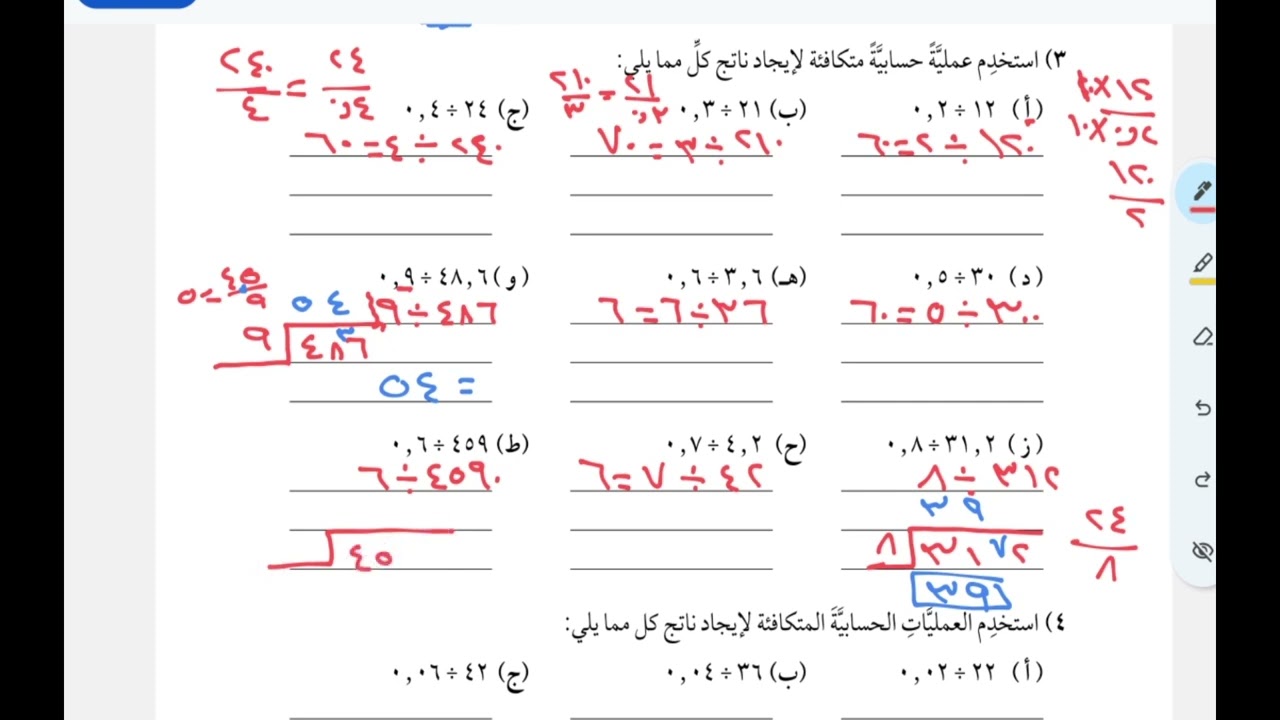 ٣) استخدِم عمليَّةً حسابيَّةً متكافئة لإيجاد ناتج كلِّ مما يلي:
(أ) ١٢ ÷ ٠,٢
١٢ × ١٠
٠,٢ × ١٠
١٢٠
٢
١٢٠ ÷ ٢ = ٦٠
(ب) ٢١ ÷ ٠,٣
٢١ = ٢١٠
٠,٣ ٣
٢١٠ ÷ ٣ = ٧٠
(ج) ٢٤ ÷ ٠,٤
٢٤ = ٢٤٠
٠,٤ ٤
٢٤٠ ÷ ٤ = ٦٠
(د) ٣٠ ÷ ٠,٥
٣٠٠ ÷ ٥ = ٦٠
(هـ) ٣,٦ ÷ ٠,٦
٣٦ ÷ ٦ = ٦
(و) ٤٨,٦ ÷ ٠,٩
٤٨٦ ÷ ٩
٤٥
٩ = ٥
٥ ٤
٩ ٤٨٣٦
= ٥٤
(ز) ٣١,٢ ÷ ٠,٨
٣١٢ ÷ ٨
٣ ٩
٨ ٣١٧٢
٢٤
٨
٣٩
(ح) ٤,٢ ÷ ٠,٧
٤٢ ÷ ٧ = ٦
(ط) ٤٥٩ ÷ ٠,٦
٤٥٩٠ ÷ ٦
٤٥
٤) استخدِم العمليَّاتِ الحسابيَّةَ المتكافئة لإيجاد ناتج كل مما يلي:
(أ) ٢٢ ÷ ٠,٠٢
(ب) ٣٦ ÷ ٠,٠٤
(ج) ٤٢ ÷ ٠,٠٦